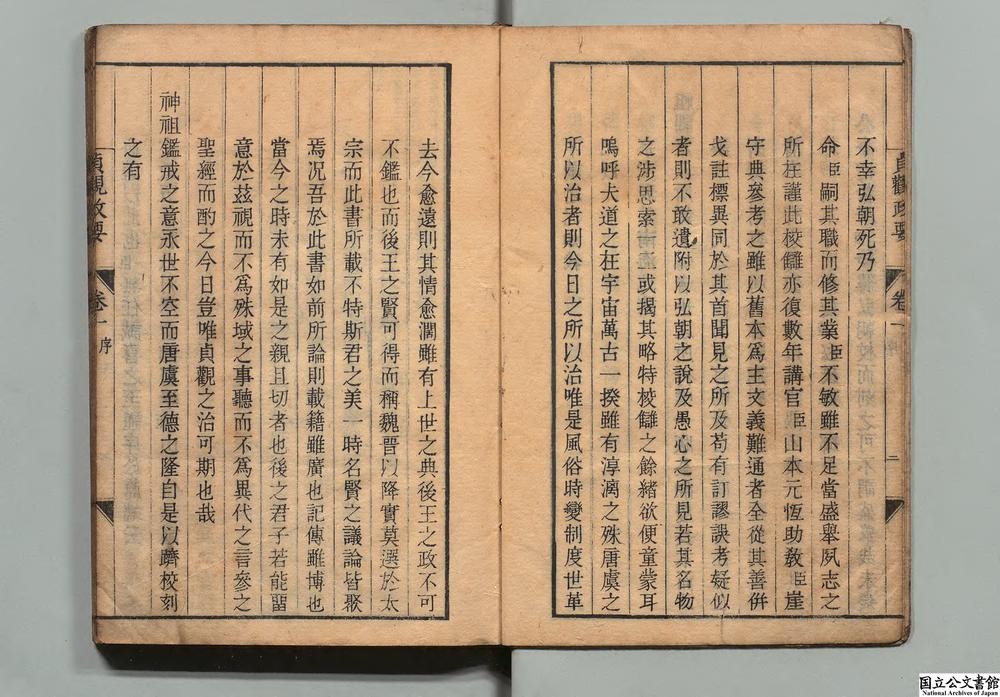 不幸弘朝死乃
命臣嗣其職而修其業臣不敏雖不足當盛擧夙志之
所在謹此校讎亦復數年講官臣山本元恆助敎臣崖
守典參考之雖以舊本爲主文義難通者全從其善併
戈註標異同於其首聞見之所及苟有訂謬誤考疑似
者則不敢遺附以弘朝之說及愚心之所見若其名物
之涉思索或揭其略特校讎之餘緖欲便童蒙耳
嗚呼夫道之在宇宙萬古一揆雖有淳漓之殊唐虞之
所以治者則今日之所以治唯是風俗時變制度世革
貞觀政要 卷一 序 二
去今愈遠則其情愈濶雖有上世之典後王之政不可
不鑑也而後王之賢可得而稱魏晉以降實莫選於太
宗而此書所載不特斯君之美一時名賢之議論皆聚
焉況吾於此書如前所論則載籍雖廣也記傳雖博也
當今之時未有如是之親且切者也後之君子若能留
意於茲視而不爲殊域之事聽而不爲異代之言參之
聖經而酌之今日豈唯貞觀之治可期也哉
神祖鑑戒之意永世不空而唐虞至德之隆自是以躋校刻
之有
貞觀政要 卷一 序
国立公文書館
National Archives of Japan